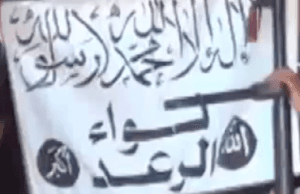 لا إله إلا الله محمد رسول الله
لواء
الله
الرعد
أكبر